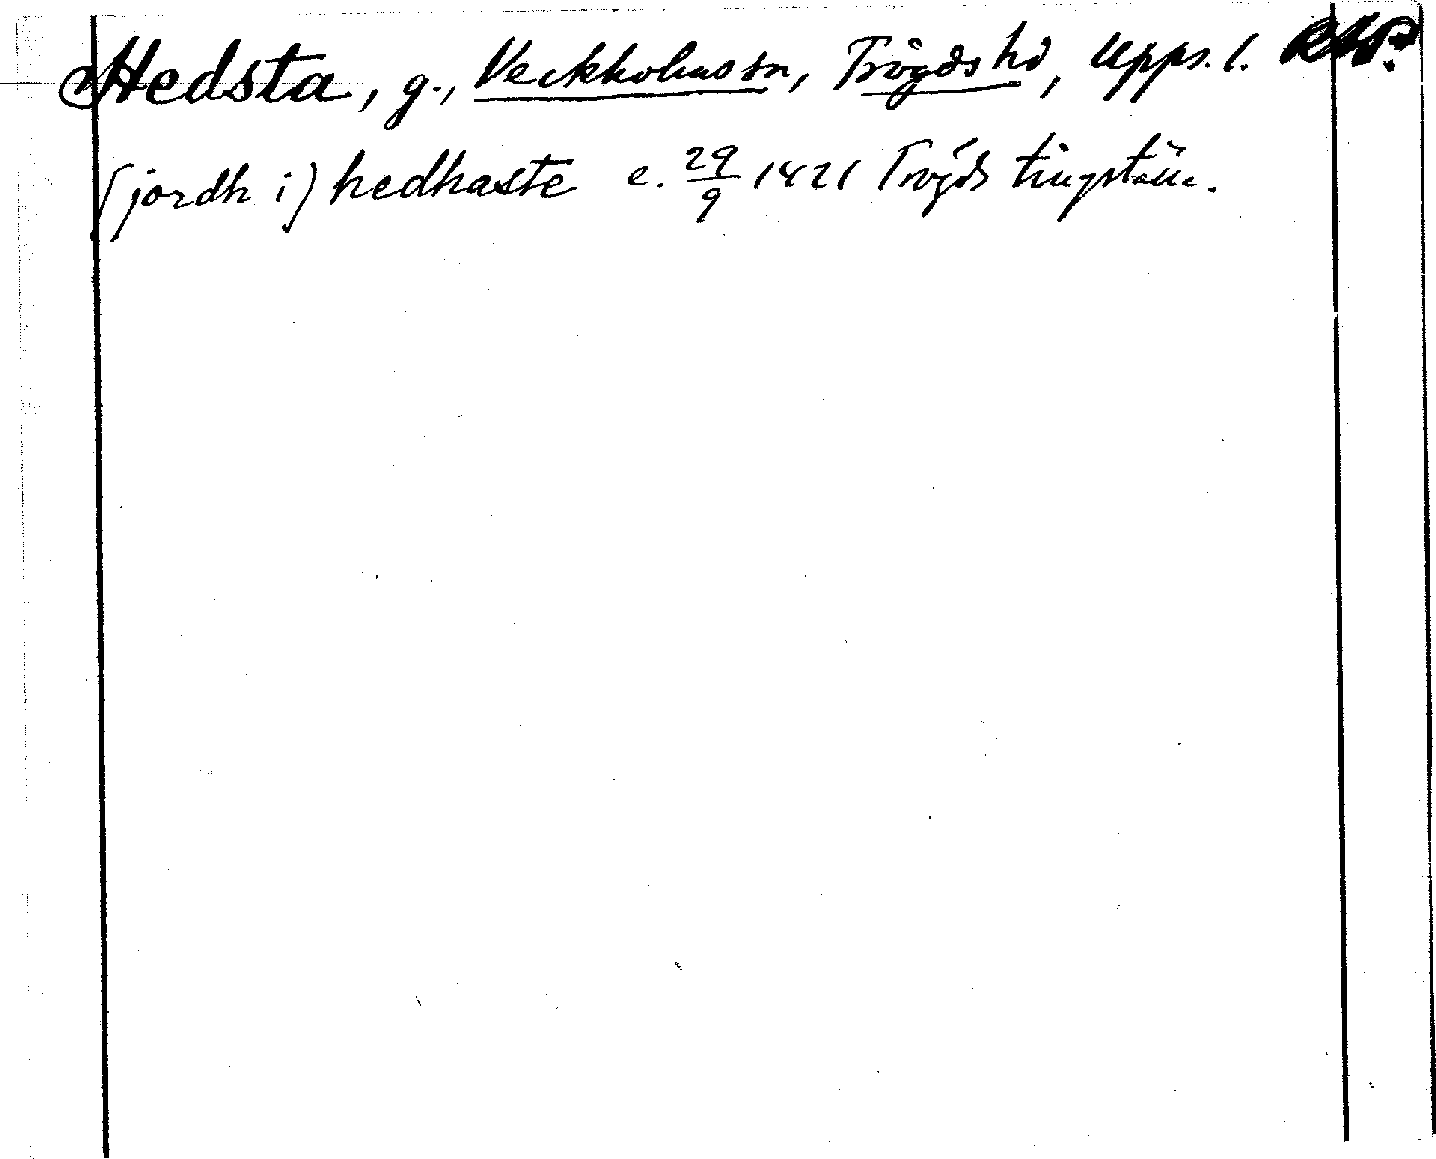 Hedsta, g., Veckholms sn, Trögds hd, Upps. l. RAP.
(jordh i) hedhaste e. 29/9 1421 Trögds tingställe.